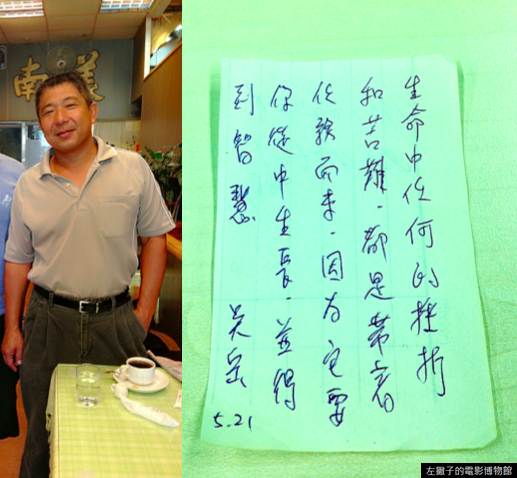 南美
生命中任何的挫折
和苦難，都是帶著
任務而來，因為它要
你從中生長，並得
到智慧
5.21
左撇子的電影博物館